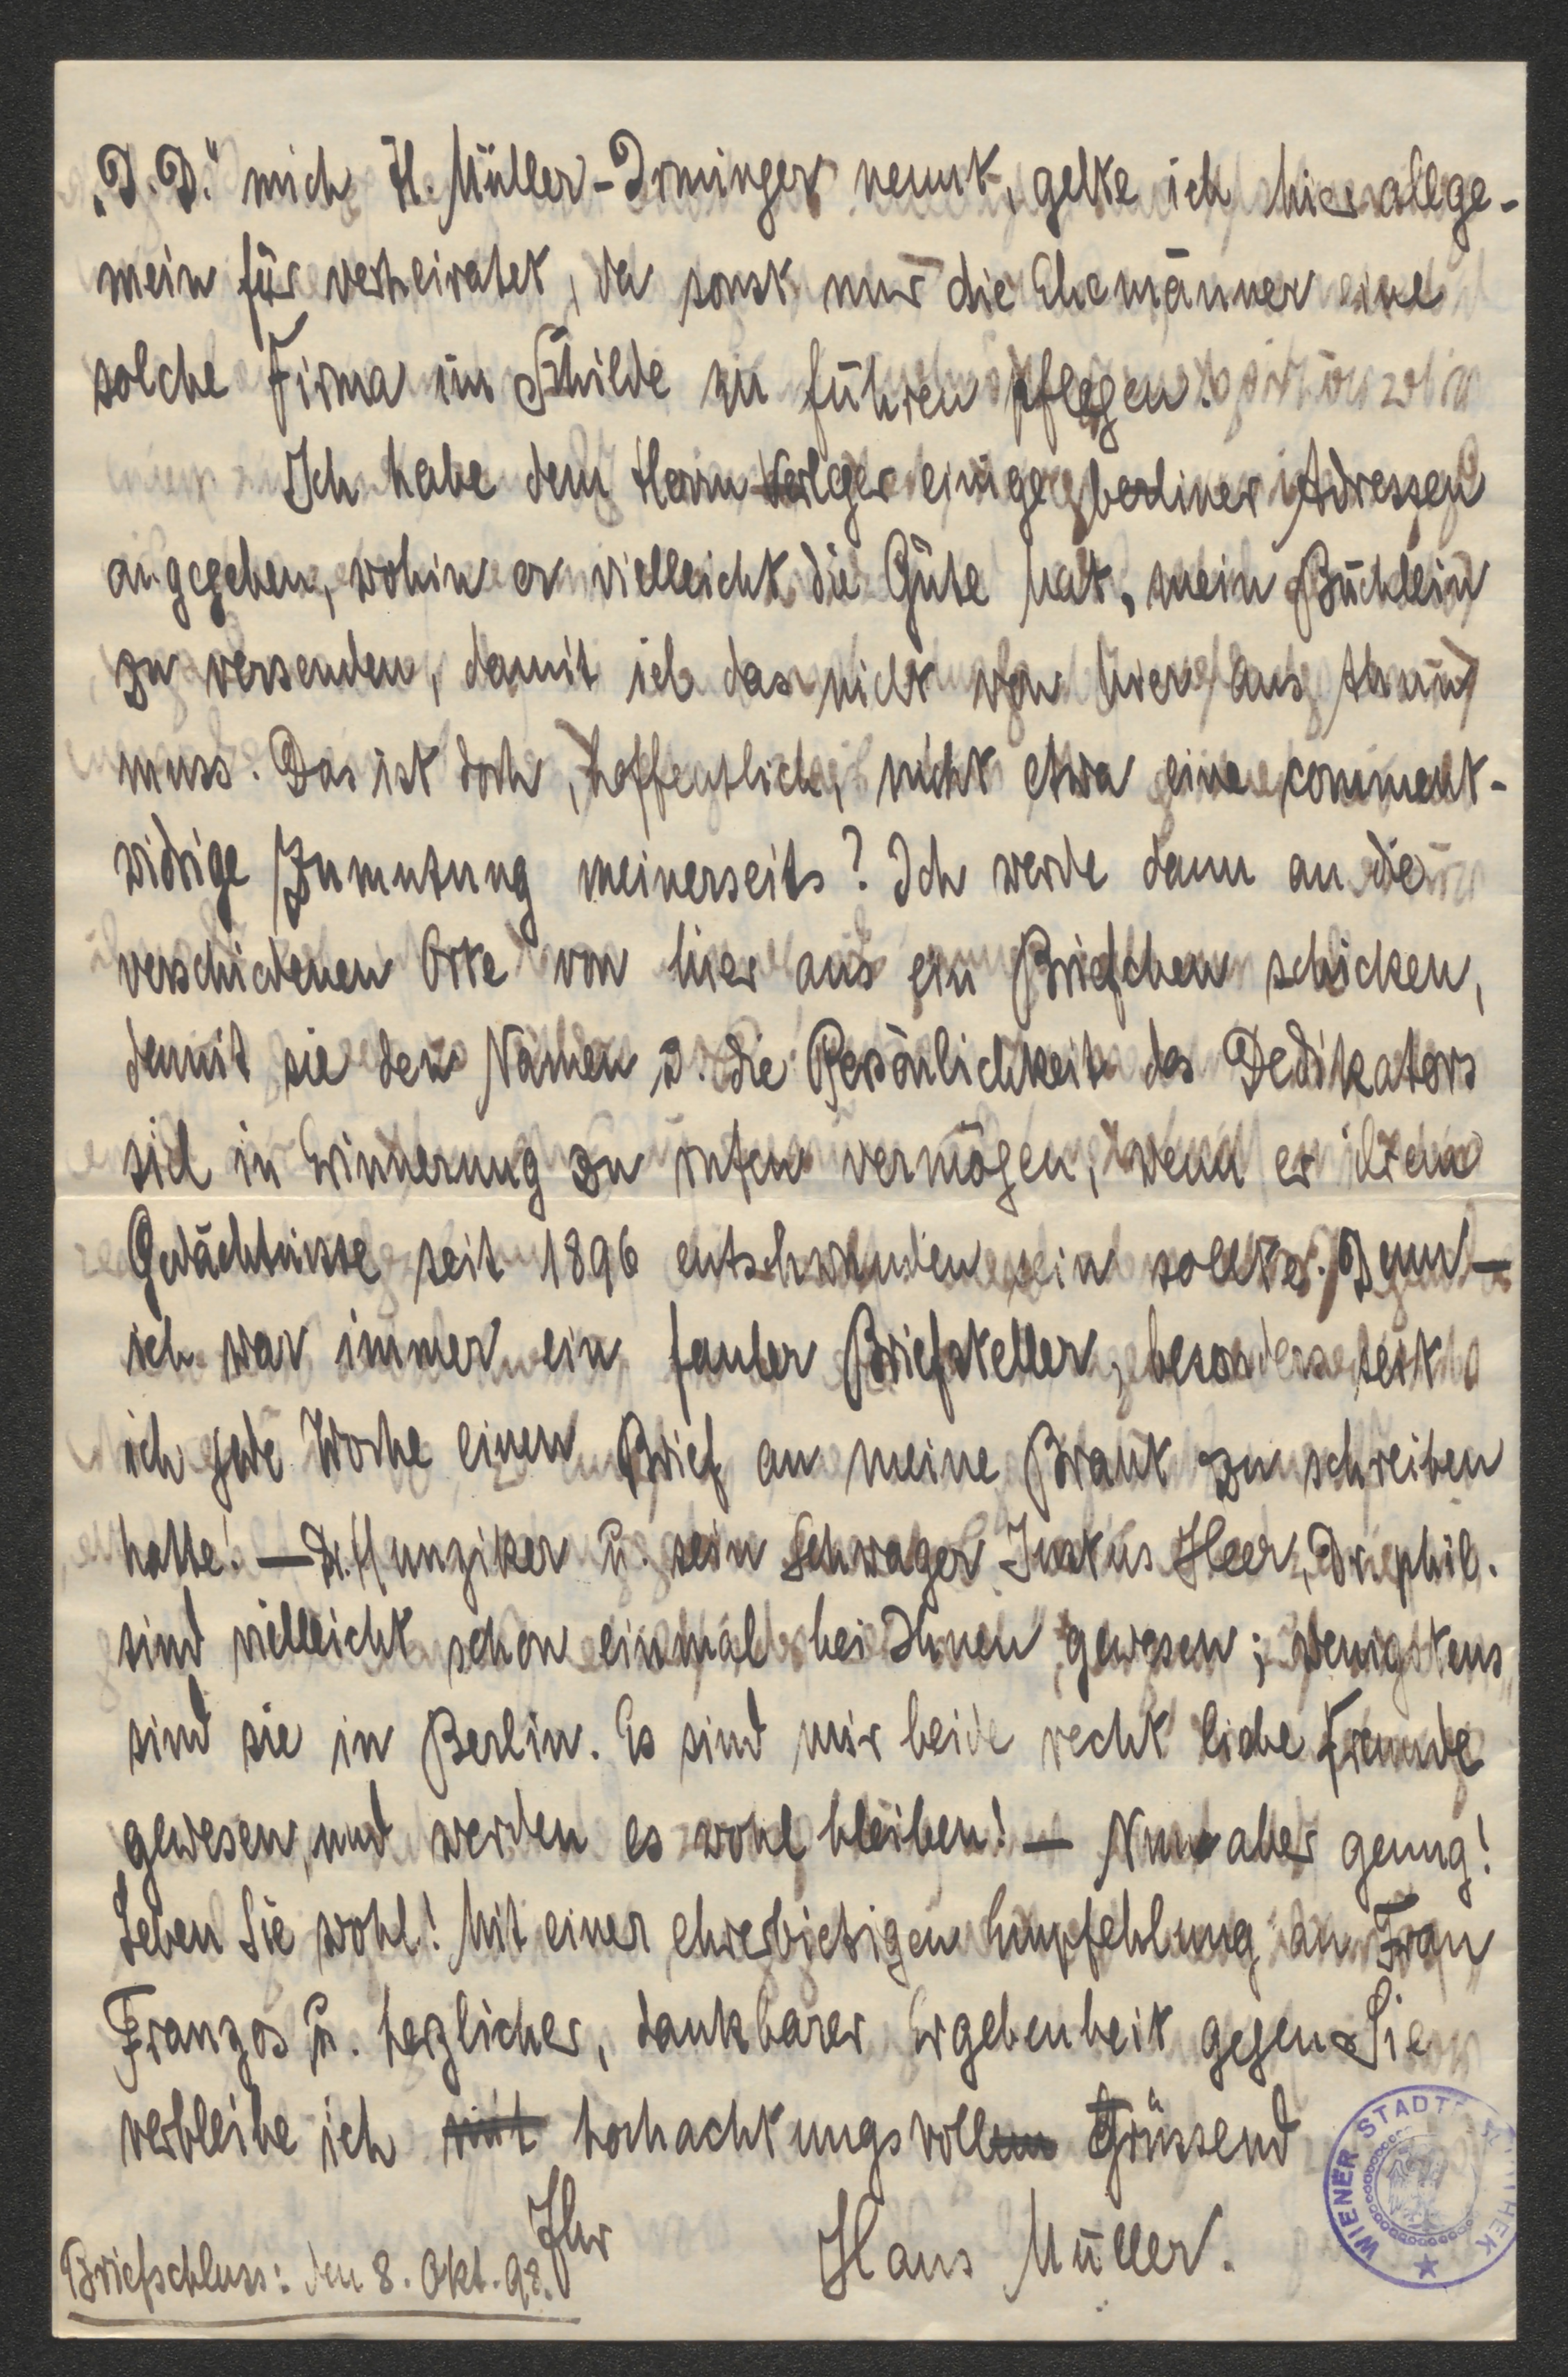 „D. D.“ mich H. Müller-Irminger nennt, gelte ich hier allge-
mein für verheiratet, da sonst nur die Ehemänner eine
solche Firma im Schilde zu führen pflegen.
Ich habe dem Herrn Verleger einige berliner Adressen
angegeben, wohin er vielleicht die Güte hat, mein Büchlein
zu versenden, damit ich das nicht von hier aus thun
muss. Das ist doch, hoffentlich, nicht etwa eine comment-
widrige Zumutung meinerseits? Ich werde dann an die
verschiedenen Orte von hier aus ein Briefchen schicken,
damit sie den Namen u. die Persönlichkeit des Dedikators
sich in Erinnerung zu rufen vermögen, wenn er ihrem
Gedächtnisse seit 1896 entschwunden sein sollte. Denn —
ich war immer ein fauler Briefsteller, besonders seit
ich jede Woche einen Brief an meine Braut zu schreiben
hatte! — Dr. Hunziker u. sein Schwager Justus Heer, Dr. phil.
sind vielleicht schon einmal bei Ihnen gewesen; wenigstens
sind sie in Berlin. Es sind mir beide recht liebe Freunde
gewesen, und werden es wohl bleiben! — Nun aber genug!
Leben Sie wohl! Mit einer ehrerbietigen Empfehlung an Frau
Franzos u. herzlicher, dankbarer Ergebenheit gegen Sie
verbleibe ich mit hochachtungsvollem Grüssend
Ihr
Hans Müller.
Briefschluss: den 8. Okt. 98.
WIENER STADT